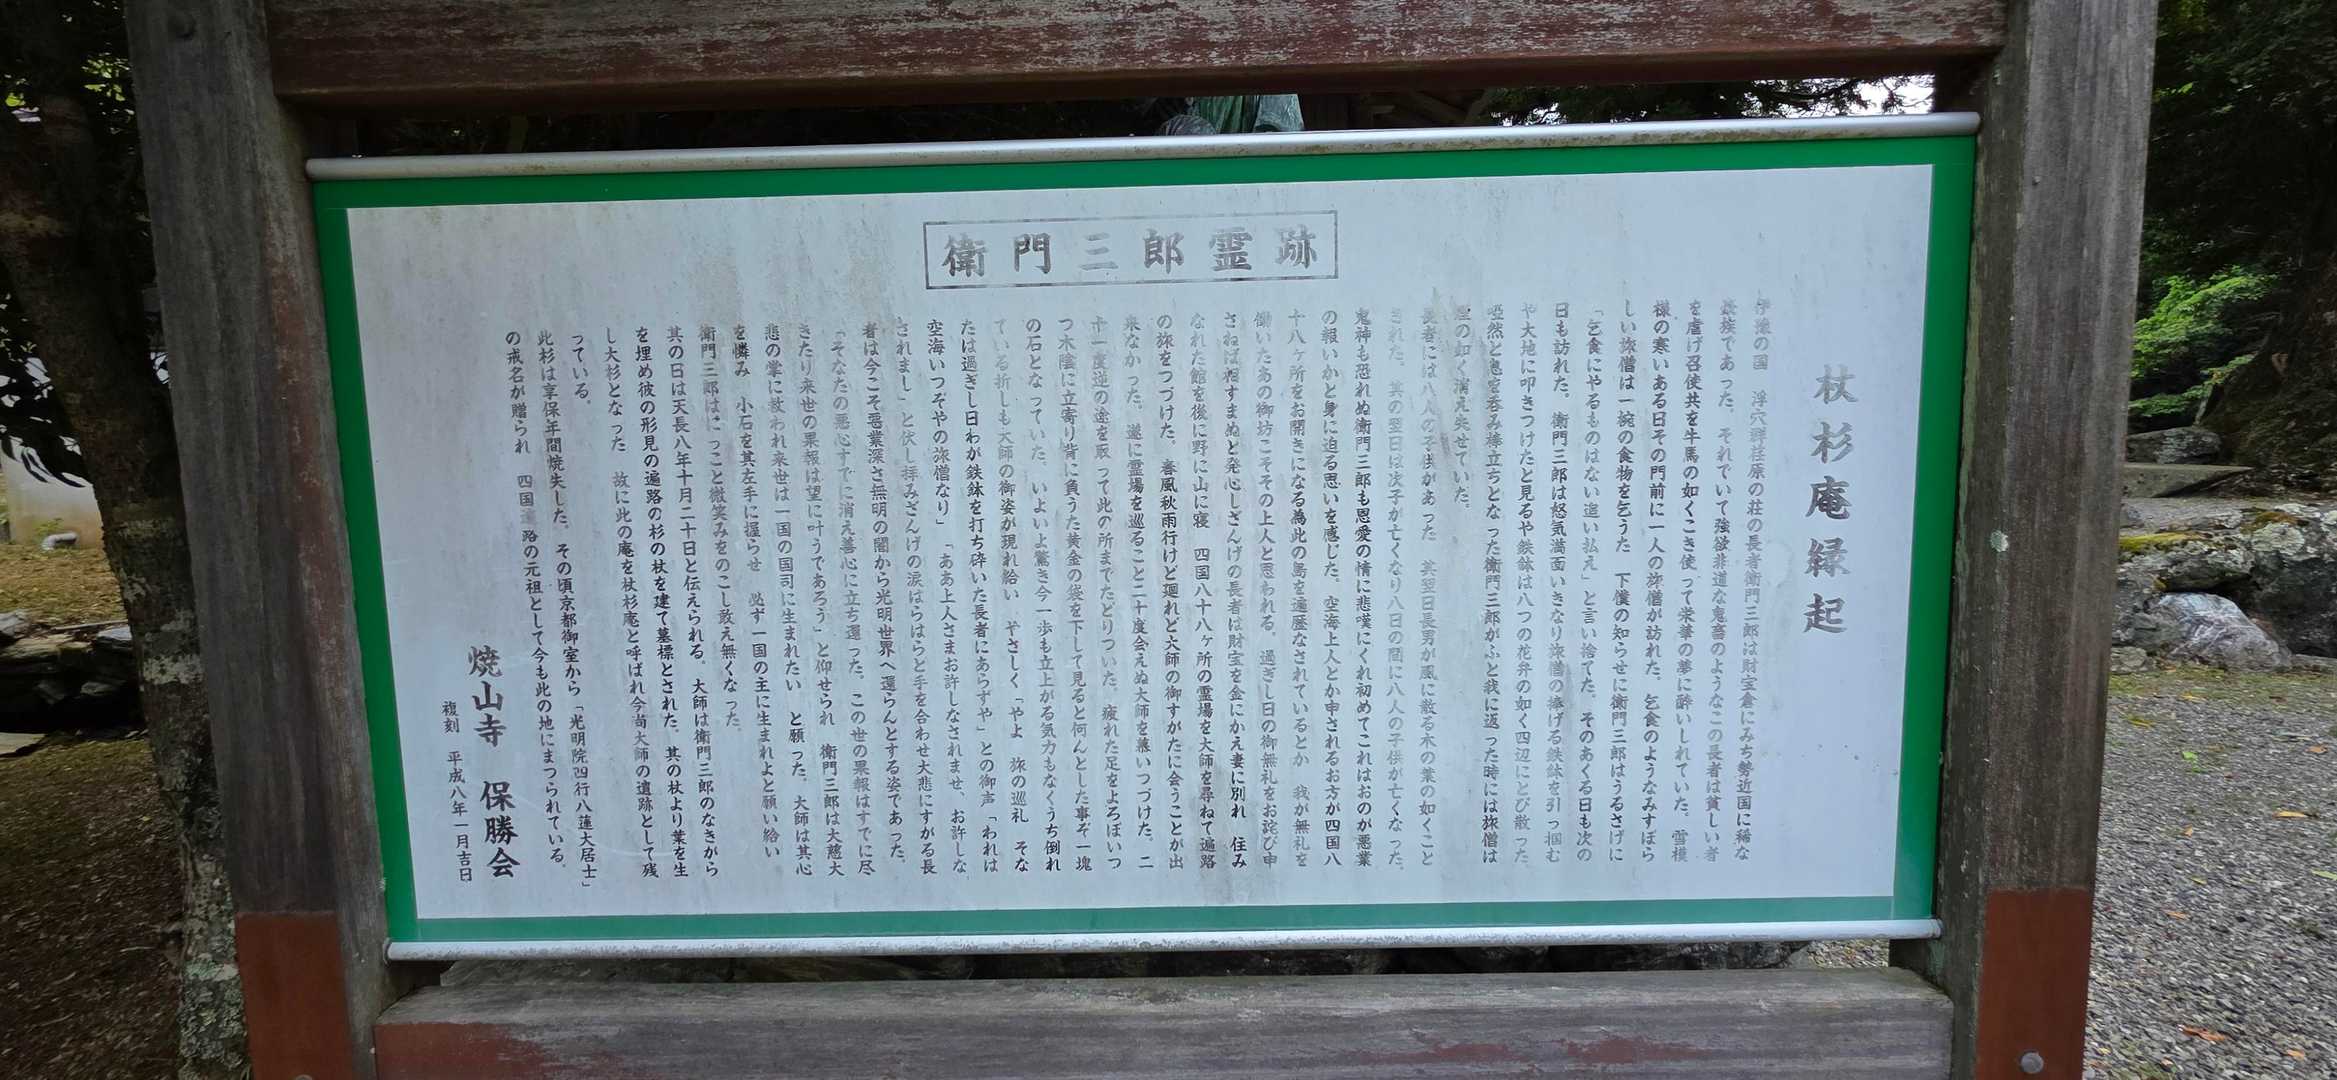 衛門三郎霊跡
杖杉庵縁起
伊豫の国　浮穴郡荏原の荘の長者衛門三郎は財宝倉にみち勢近国に稀な
豪族であった。それでいて強欲非道な鬼畜のようなこの長者は貧しい者
を虐げ召使共を牛馬の如くこき使って栄華の夢に酔いしれていた。雪模
様の寒いある日その門前に一人の旅僧が訪れた。乞食のようなみすぼら
しい旅僧は一椀の食物を乞うた　下僕の知らせに衛門三郎はうるさげに
「乞食にやるものはない追い払え」と言い捨てた。そのあくる日も次の
日も訪れた。衛門三郎は怒気満面いきなり旅僧の捧げる鉄鉢を引っ掴む
や大地に叩きつけたと見るや鉄鉢は八つの花弁の如く四辺にとび散った。
唖然と息を呑み棒立ちとなった衛門三郎がふと我に返った時には旅僧は
煙の如く消え失せていた。
長者には八人の子供があった　其翌日長男が風に散る木の葉の如くこと
きれた。其の翌日は次子が亡くなり八日の間に八人の子供が亡くなった。
鬼神も恐れぬ衛門三郎も恩愛の情に悲嘆にくれ初めてこれはおのが悪業
の報いかと身に迫る思いを感じた。空海上人とか申されるお方が四国八
十八ヶ所をお開きになる為此の島を遍歴なされているとか　我が無礼を
働いたあの御坊こそその上人と思われる。過ぎし日の御無礼をお詫び申
さねば相すまぬと発心しざんげの長者は財宝を金にかえ妻に別れ　住み
なれた館を後に野に山に寝　四国八十八ヶ所の霊場を大師を尋ねて遍路
の旅をつづけた。春風秋雨行けど廻れど大師の御すがたに会うことが出
来なかった。遂に霊場を巡ること二十度会えぬ大師を慕いつづけた。二
十一度逆の途を取って此の所までたどりついた。疲れた足をよろぼいつ
つ木陰に立寄り背に負うた黄金の袋を下して見ると何んとした事ぞ一塊
の石となっていた。いよいよ驚き今一歩も立上がる気力もなくうち倒れ
ている折しも大師の御姿が現れ給い　やさしく「やよ　旅の巡礼　そな
たは過ぎし日わが鉄鉢を打ち砕いた長者にあらずや」との御声「われは
空海いつぞやの旅僧なり」「ああ上人さまお許しなされませ、お許しな
されまし」と伏し拝みざんげの涙はらはらと手を合わせ大悲にすがる長
者は今こそ悪業深さ無明の闇から光明世界へ還らんとする姿であった。
「そなたの悪心すでに消え善心に立ち還った。この世の果報はすでに尽
きたり来世の果報は望に叶うであろう」と仰せられ　衛門三郎は大慈大
悲の掌に救われ来世は一国の国司に生まれたい　と願った。大師は其心
を憐み　小石を其左手に握らせ　必ず一国の主に生まれよと願い給い
衛門三郎はにっこと微笑みをのこし敢え無くなった。
其の日は天長八年十月二十日と伝えられる。大師は衛門三郎のなきがら
を埋め彼の形見の遍路の杉の杖を建て墓標とされた。其の杖より葉を生
し大杉となった　故に此の庵を杖杉庵と呼ばれ今尚大師の遺跡として残
っている。
此杉は享保年間焼失した。その頃京都御室から「光明院四行八蓮大居士」
の戒名が贈られ　四国遍路の元祖として今も此の地にまつられている。
焼山寺　保勝会
複刻　平成八年一月吉日